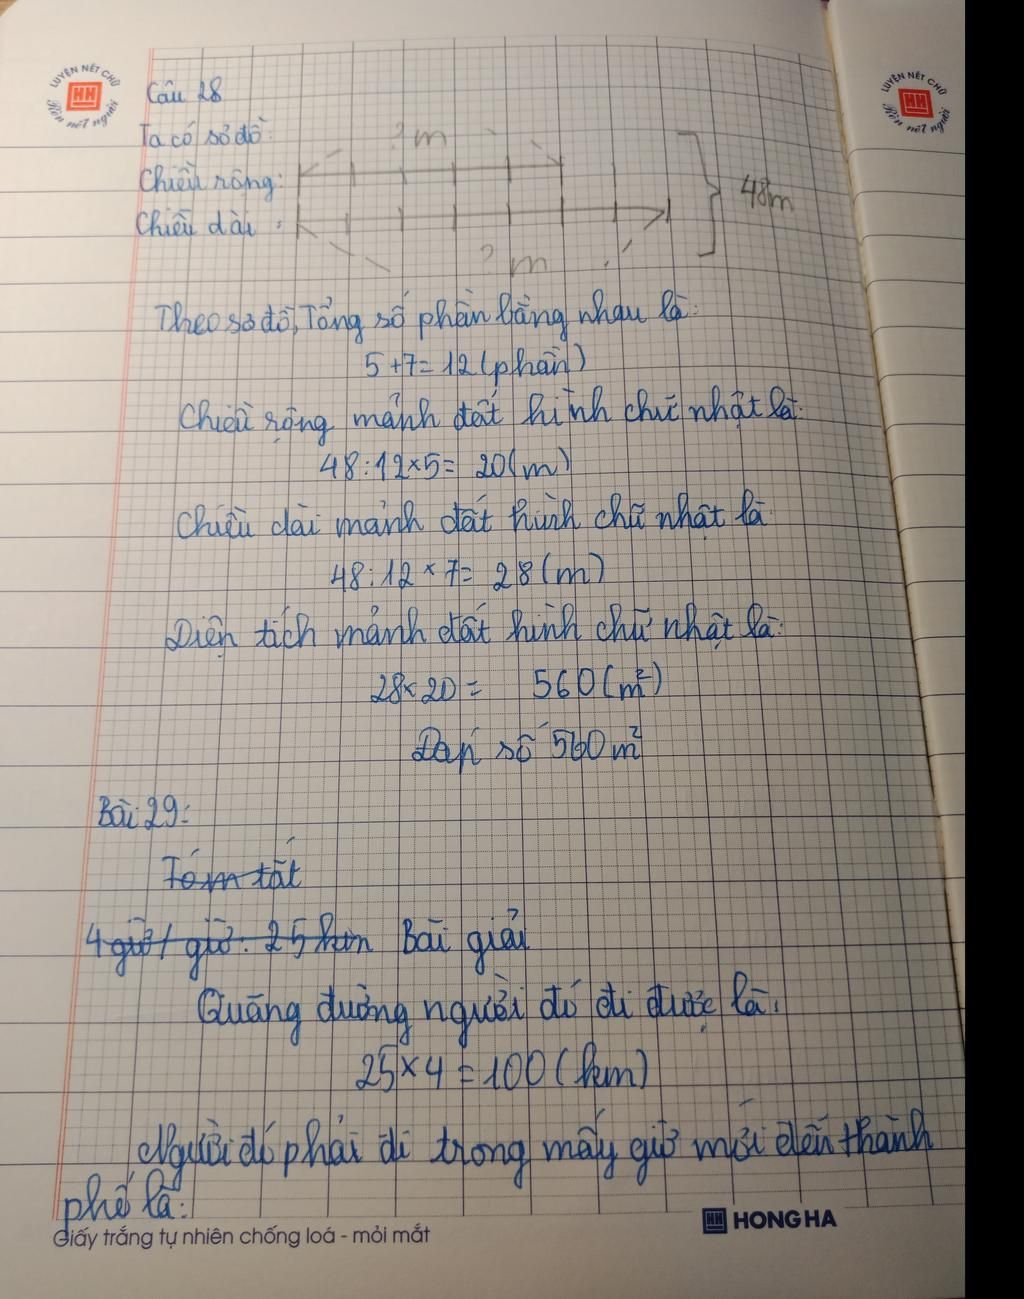 LUYỆN NÉT CHỮ
HH
Rèn nết người
LUYỆN NÉT CHỮ
HH
Rèn nết người
Câu 28
Ta có sơ đồ:
? m
Chiều rộng:
48m
Chiều dài :
? m
Theo sơ đồ, Tổng số phần bằng nhau là:
5+7=12(phần)
Chiều rộng mảnh đất hình chữ nhật là:
48:12×5= 20(m)
Chiều dài mảnh đất hình chữ nhật là
48:12×7= 28(m)
Diện tích mảnh đất hình chữ nhật là:
28×20= 560(m²)
Đáp số 560m²
Bài 29:
Tóm tắt
4 giờ/ giờ: 25km Bài giải
Quãng đường người đó đi được là:
25×4=100(km)
Người đó phải đi trong mấy giờ mới đến thành
phố là:
Giấy trắng tự nhiên chống loá - mỏi mắt
HH HONG HA